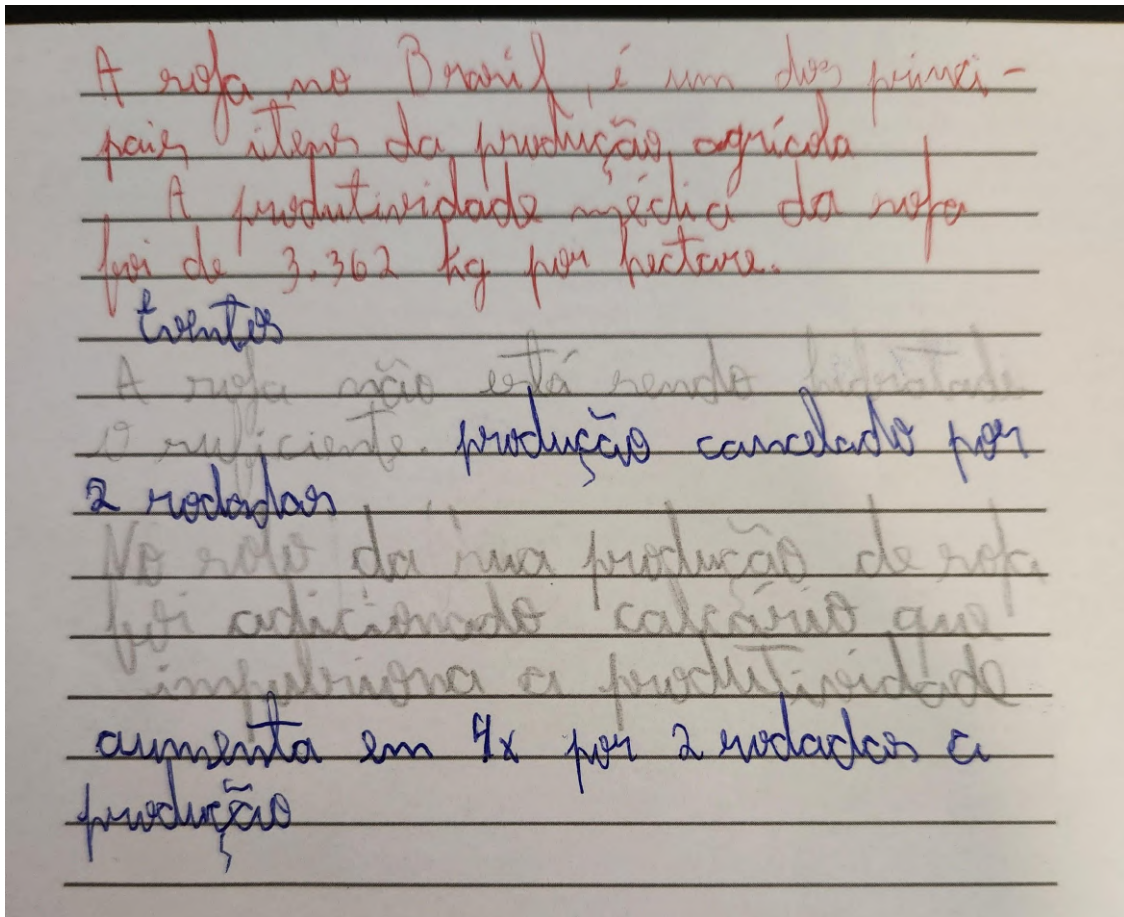 A soja no Brasil, é um dos princi-
pais itens da produção agrícola
A produtividade média da soja
foi de 3.362 kg por hectare.
Eventos
A soja não está sendo hidratada
o suficiente. produção cancelado por
2 rodadas
No solo da sua produção de soja
foi adicionado calcário que
impulsiona a produtividade
aumenta em 4x por 2 rodadas a
produção